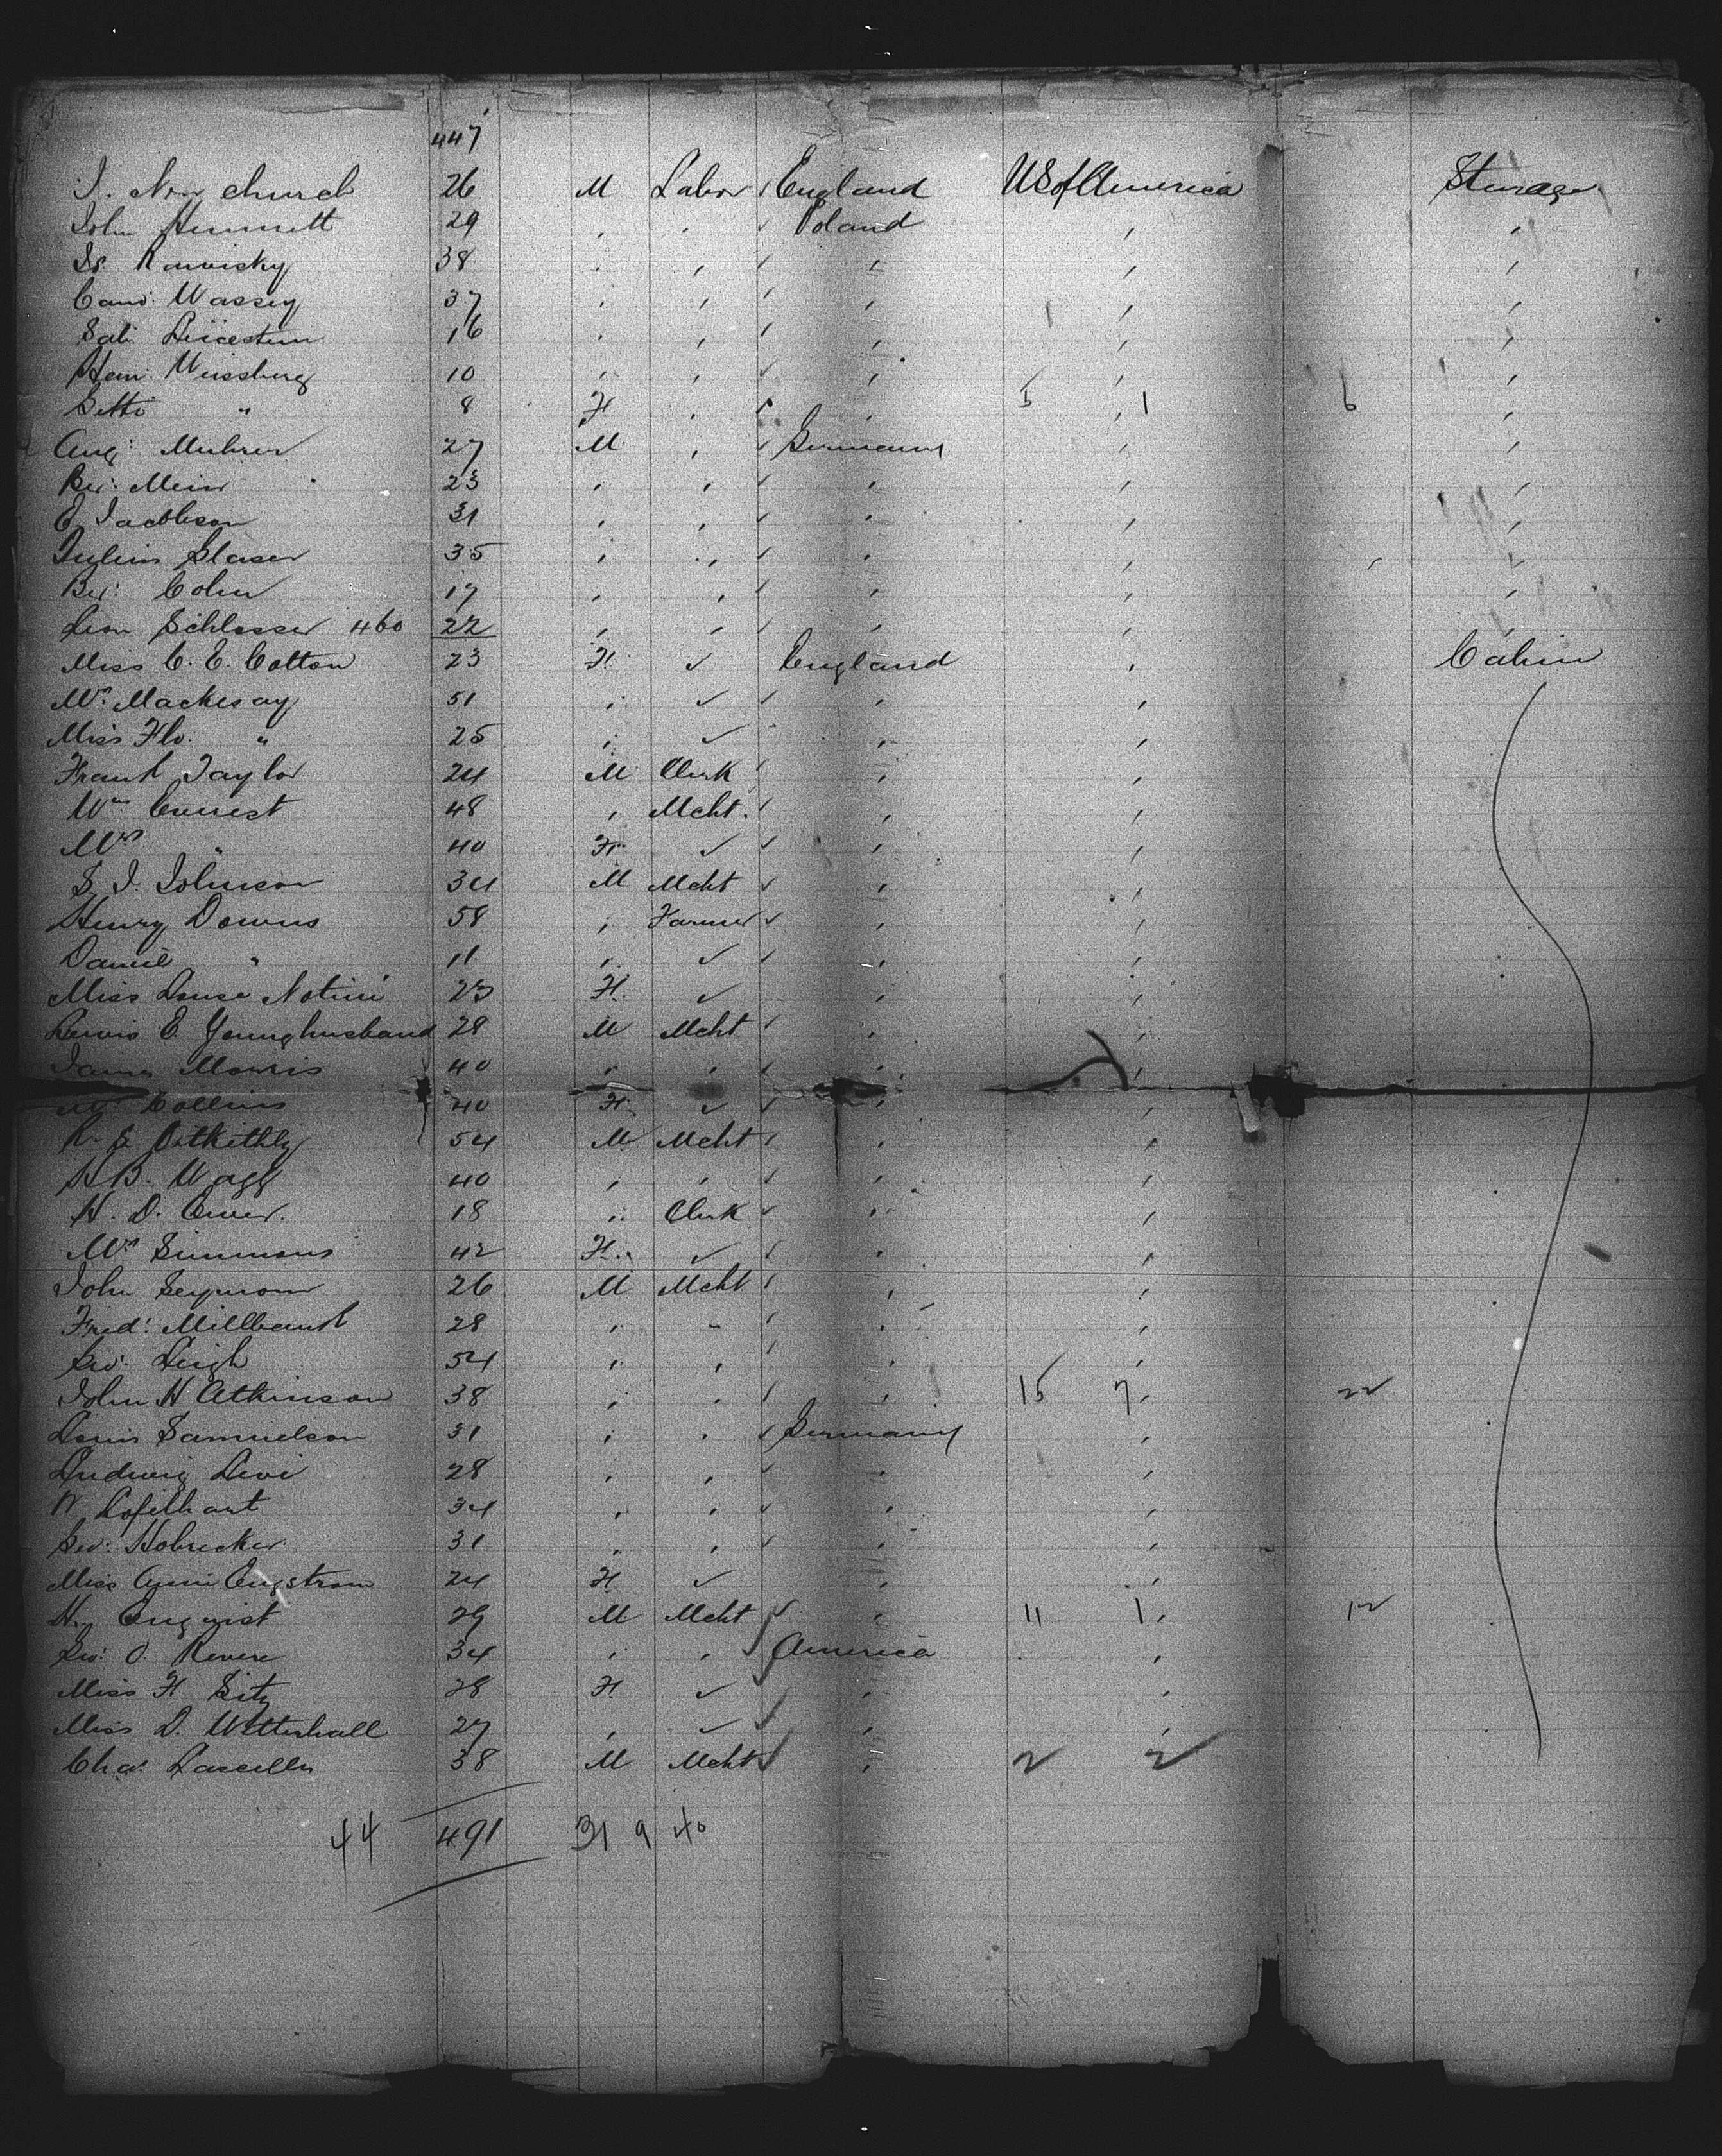 447
J. New church 26 M Labor England US of America Steerage
John Hemmett 29 , , Poland , ,
Is. Rawisky 38 , , , , ,
Wassey 37 , , , , ,
16 , , , , ,
Weissberg 10 , , , , ,
" 8 F , , 5 , 1 6 ,
Aug: Muhrer 27 M , Germany , ,
Ber: Meier 23 , , , , ,
E. Jacobson 31 , , , , ,
Julius Glaser 35 , , , , ,
Ber: Cohn 17 , , , , ,
Leon Schlosser 460 22 , , , , ,
Miss C. E. Cotton 23 F ✓ England , Cabin
Mrs Mackesay 51 , ✓ , ,
Miss Flo. " 25 , ✓ , ,
Frank Taylor 24 M Clerk , ,
Wm Everest 48 , Mcht. , ,
Mrs " 40 F ✓ , ,
S. J. Johnson 34 M Mcht , ,
Henry Downs 58 , Farmer , ,
Daniel " 11 , ✓ , ,
Miss Louse Notini 23 F ✓ , ,
Lewis E. Younghusband 28 M Mcht , ,
James Morris 40 , , , ,
Collins 40 F ✓ , ,
R. S. 54 M Mcht , ,
H B. Wagg 40 , , , ,
H. D. 18 , Clerk , ,
Mrs Simmons 42 F ✓ , ,
John Seymour 26 M Mcht , ,
Fred: Millbank 28 , " , ,
Geo. Leigh 54 , , , ,
John H Atkinson 38 , , , 15 7, 22
Louis Samuelson 31 , , Germany ,
Ludwig Levi 28 , , , ,
34 , , , ,
Geo: Hobrecker 31 , , , ,
Miss Anni Engstrom 24 F ✓ , ,
H. Engqvist 29 M Mcht , 11 1, 12
Geo: O. Revere 34 , , America ,
Miss F. 28 F ✓ , ,
Miss D. Wetterhall 27 , ✓ , ,
Chas. Lascelles 38 M Mcht , 2 2
44 491 31 9 40